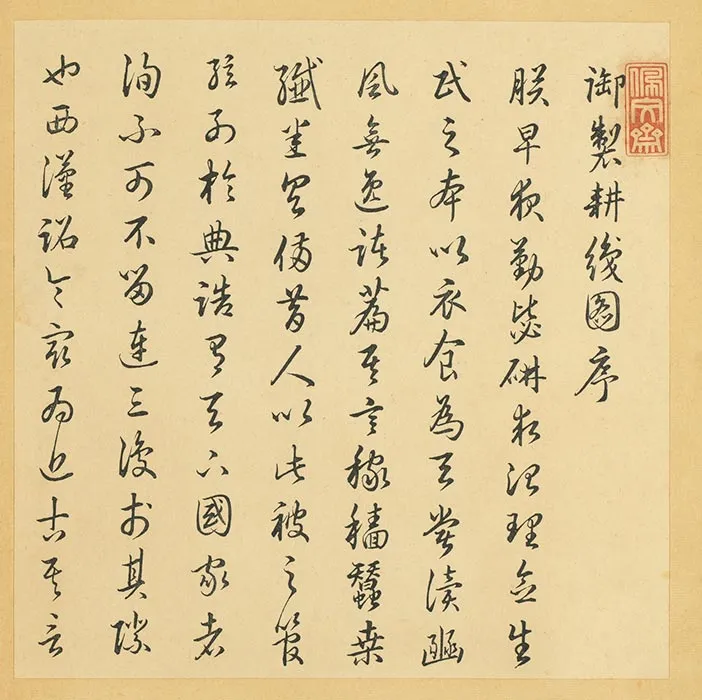 佩文齋
御製耕織圖序
朕早夜勤毖研求治理念生
民之本以衣食為天嘗讀豳
風無逸諸篇其言稼穡蠶桑
纖悉具備昔人以此被之管
弦列於典誥有天下國家者
洵不可不留連三復於其際
也西漢詔令最為近古其言